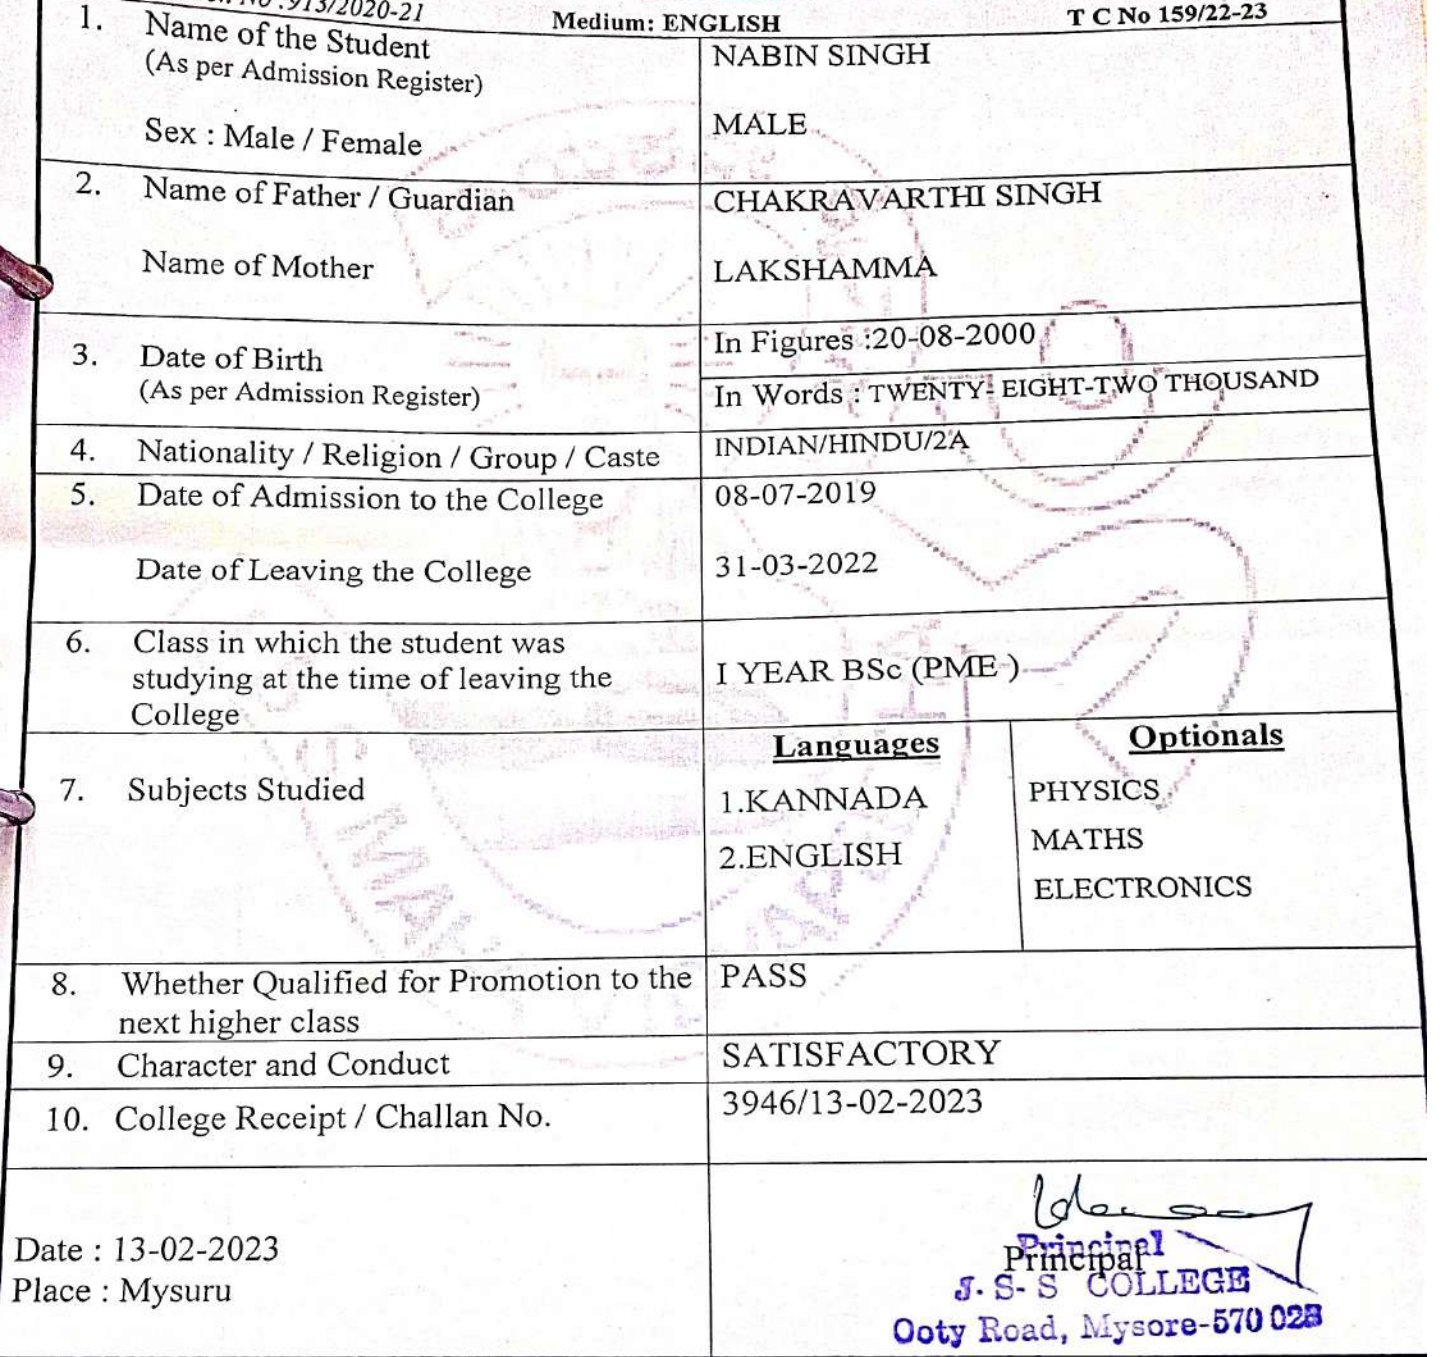 No :913/2020-21 Medium: ENGLISH T C No 159/22-23
1. Name of the Student NABIN SINGH
(As per Admission Register)
Sex : Male / Female MALE
2. Name of Father / Guardian CHAKRAVARTHI SINGH
Name of Mother LAKSHAMMA
3. Date of Birth In Figures :20-08-2000
(As per Admission Register) In Words : TWENTY- EIGHT-TWO THOUSAND
4. Nationality / Religion / Group / Caste INDIAN/HINDU/2A
5. Date of Admission to the College 08-07-2019
Date of Leaving the College 31-03-2022
6. Class in which the student was
studying at the time of leaving the I YEAR BSc (PME )
College
Languages Optionals
7. Subjects Studied 1.KANNADA PHYSICS
2.ENGLISH MATHS
ELECTRONICS
8. Whether Qualified for Promotion to the PASS
next higher class
9. Character and Conduct SATISFACTORY
10. College Receipt / Challan No. 3946/13-02-2023
Date : 13-02-2023
Place : Mysuru
Principal
Principal
J. S- S COLLEGE
Ooty Road, Mysore-570 02